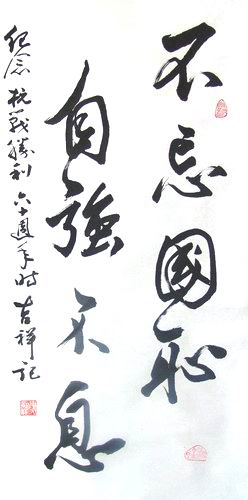 不忘國恥
自強不息
紀念抗戰勝利六十週年時吉祥記